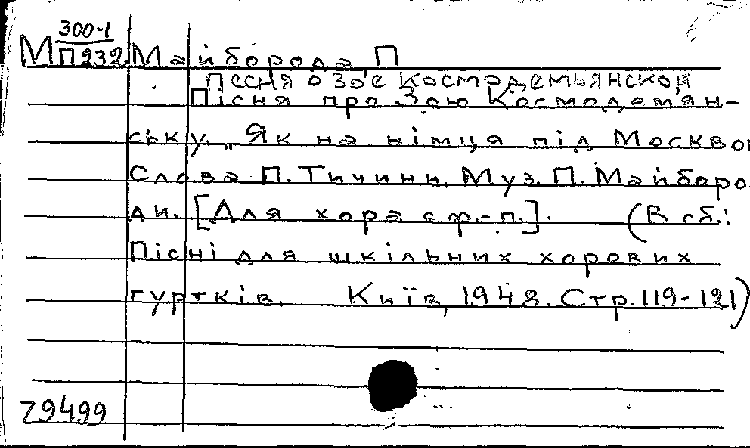 300-1
М П 232 Майборода, П.
Песня о Зое Космодемьянской
Пісня про Зою Космодемян-
ську. „Як на німця під Москвою
Слова П. Тичини. Муз. П. Майборо
ди. [Для хора с ф.-п.]. (В сб.:
Пісні для шкільних хорових
гуртків. Київ, 1948. Стр. 119-121)
79499